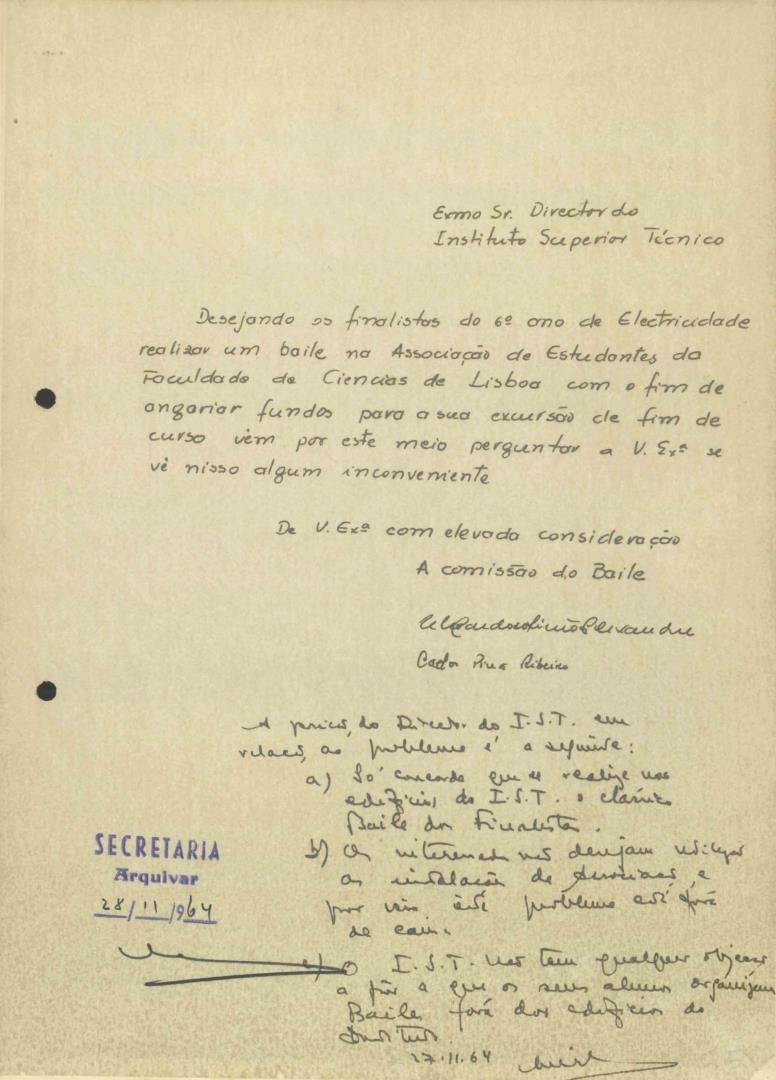 Exmo Sr. Director do
Instituto Superior Técnico
Desejando os finalistas do 6º ano de Electricidade
realizar um baile na Associação de Estudantes da
Faculdade de Ciencias de Lisboa com o fim de
angariar fundos para a sua excursão de fim de
curso vêm por este meio perguntar a V. Exª se
vê nisso algum inconveniente
De V. Exª com elevada consideração
A comissão do Baile
Carlos Pina Ribeiro
A posição do Director do I.S.T. em
relação ao problema é a seguinte:
a) Só concordo que se realize nos
edifícios do I.S.T. o clássico
Baile dos Finalistas.
b) Os interessados não desejam utilizar
as instalações da Associação, e
por isso este problema está fora
de causa.
c) O I.S.T. não tem qualquer objecção
a pôr a que os seus alunos organizem
Bailes fora dos edifícios do
Instituto.
27.11.64
SECRETARIA
Arquivar
28/11/964